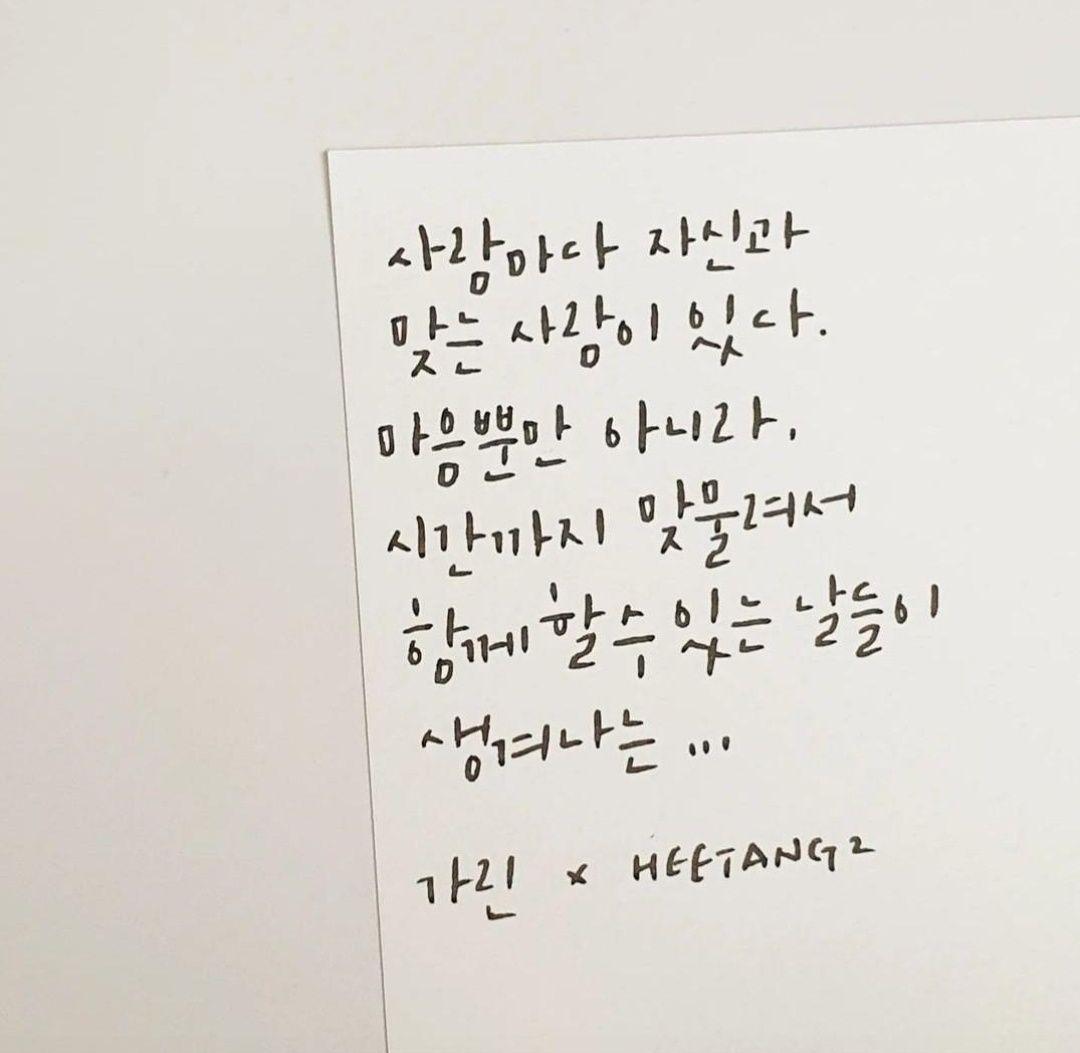 사람마다 자신과
맞는 사람이 있다.
마음뿐만 아니라,
시간까지 맞물려서
함께 할 수 있는 날들이
생겨나는 ...
가린 x HEETANG2